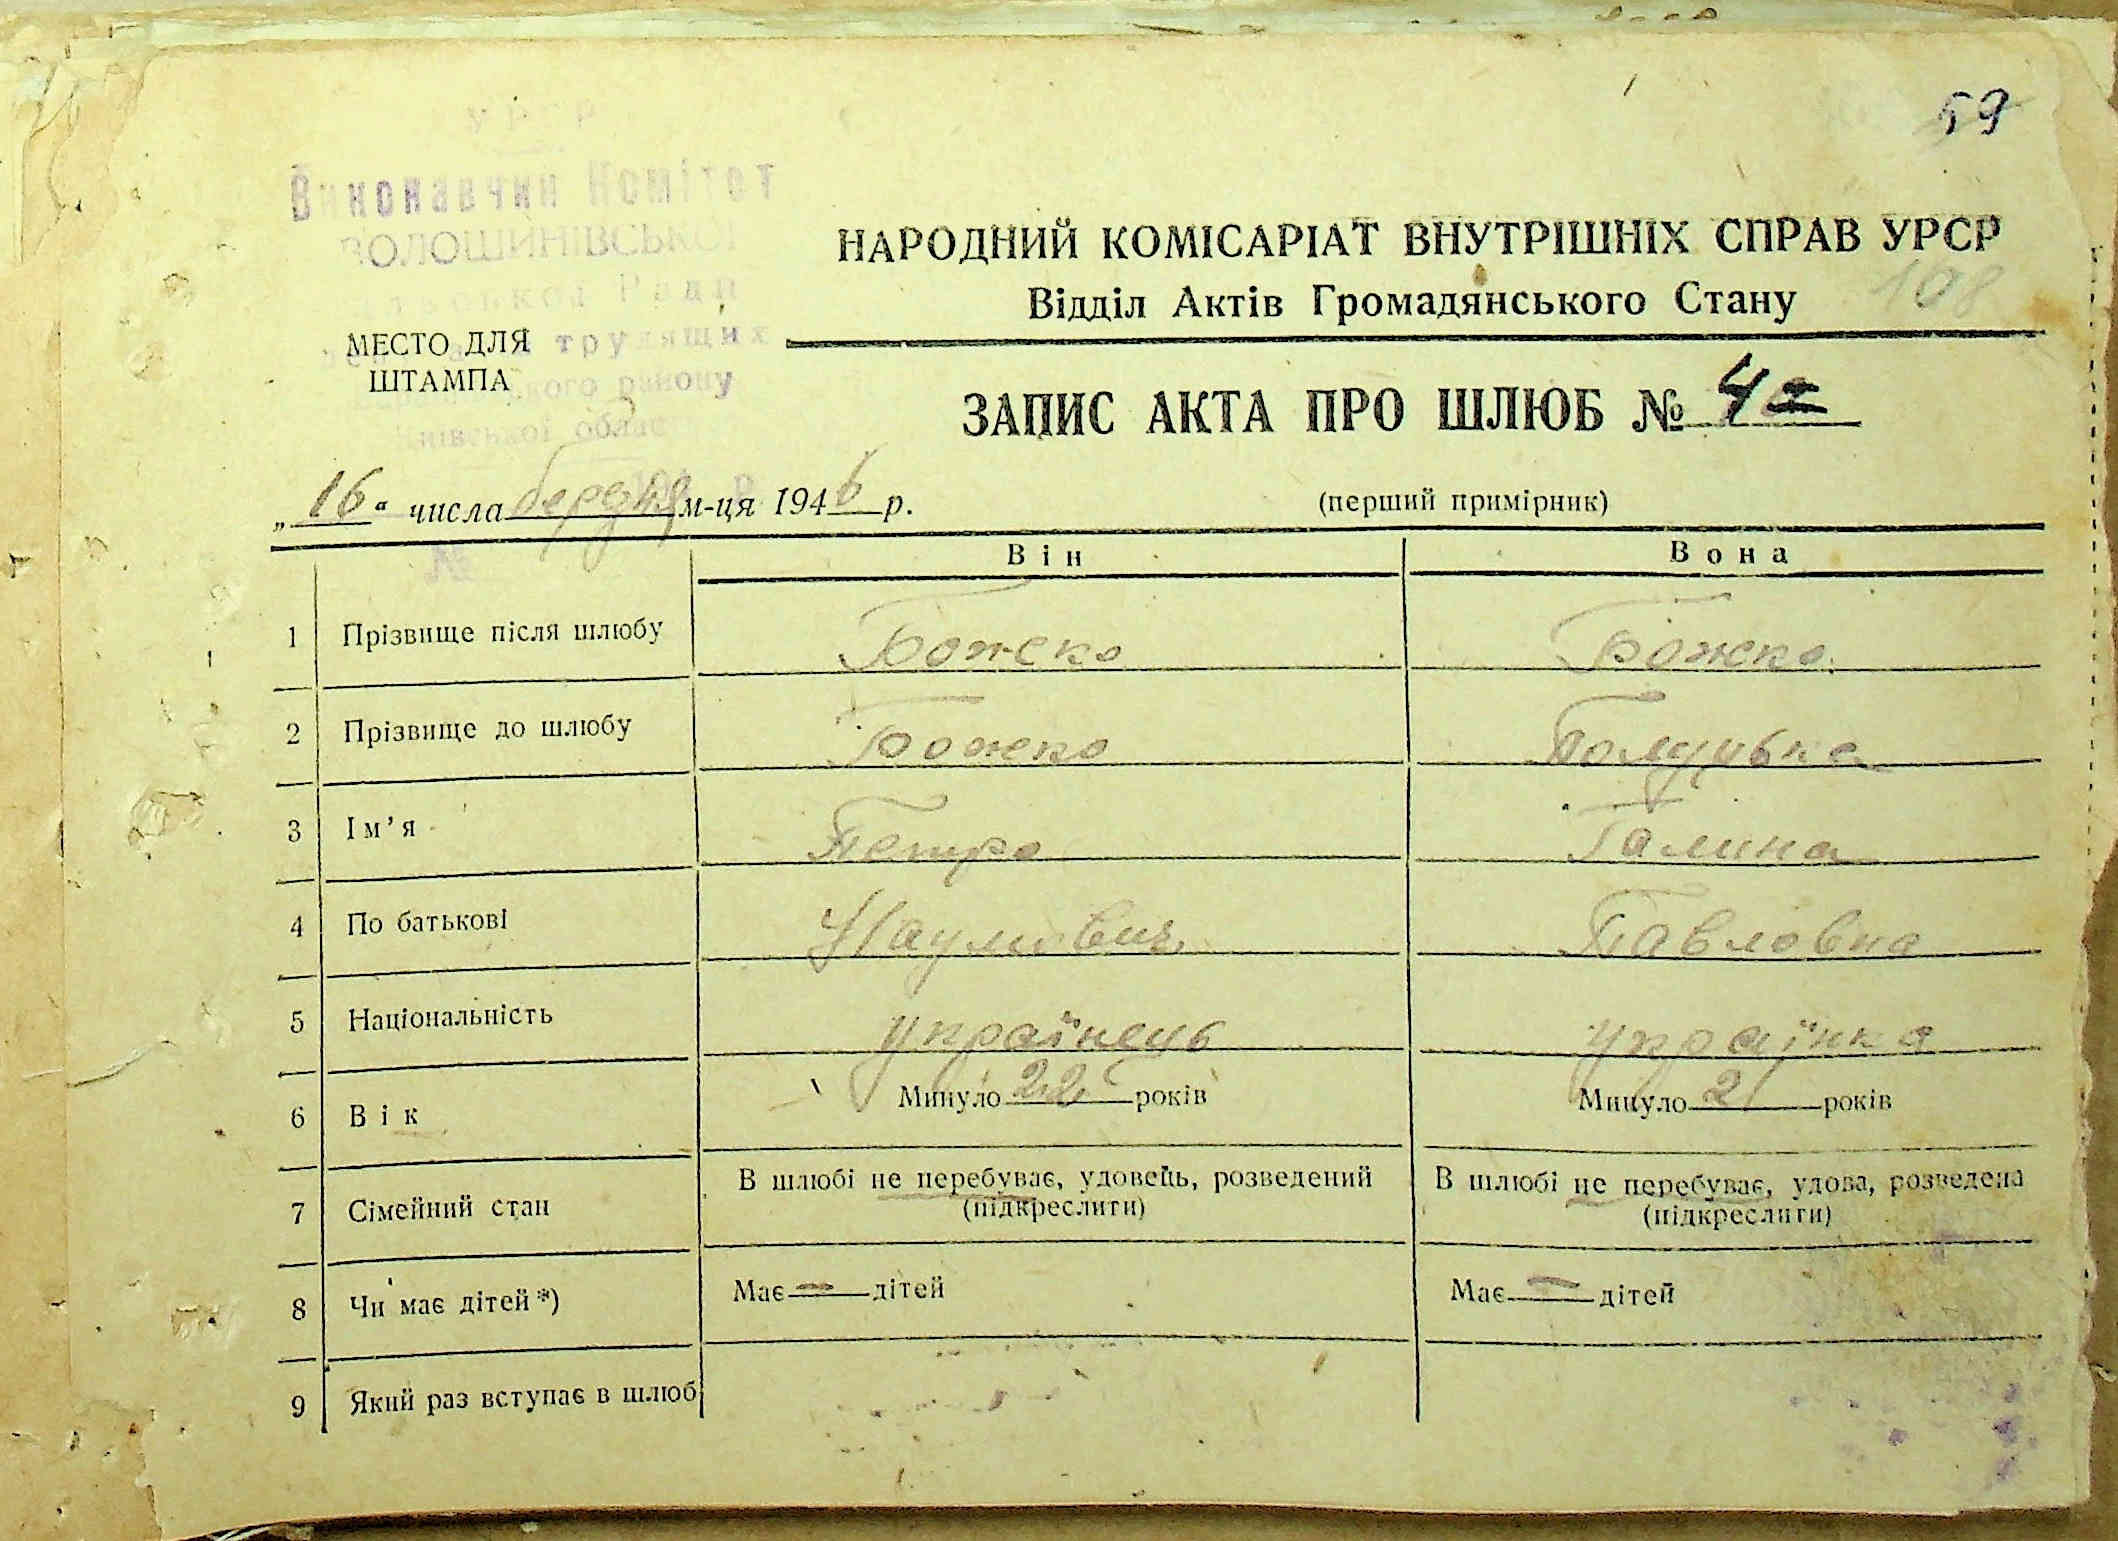 59
УРСР
Виконавчий Комітет
ВОЛОШИНІВСЬКОЇ
Ради
трудящих
ського району
Київської облас
МЕСТО ДЛЯ
ШТАМПА
НАРОДНИЙ КОМІСАРІАТ ВНУТРІШНІХ СПРАВ УРСР
Відділ Актів Громадянського Стану
108
ЗАПИС АКТА ПРО ШЛЮБ № 4
„16“ числа березня м-ця 1946 р.
(перший примірник)
№
Він Вона
1 Прізвище після шлюбу Божко Божко
2 Прізвище до шлюбу Божко
3 Ім’я Петро Галина
4 По батькові Наумович Павловна
5 Національність українець українка
6 Вік Минуло 22 років Минуло 21 років
7 Сімейний стан В шлюбі не перебуває, удовець, розведений В шлюбі не перебуває, удова, розведена
(підкреслити) (підкреслити)
8 Чи має дітей*) Має — дітей Має — дітей
9 Який раз вступає в шлюб